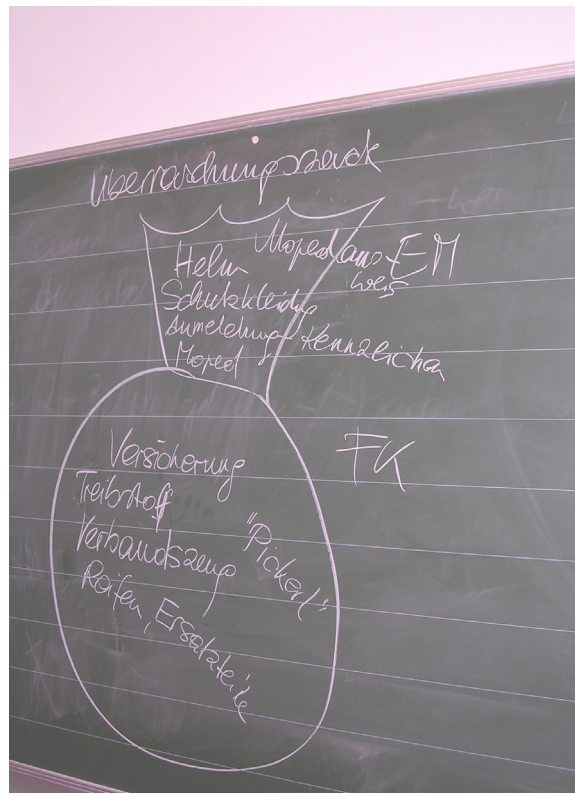 Überraschungssack
Helm Moped aus EM
Schutzkleidung
Anmeldung - Kennzeichen
Moped
FK
Versicherung
Treibstoff
Verbandszeug "Pickerl"
Reifen, Ersatzteile